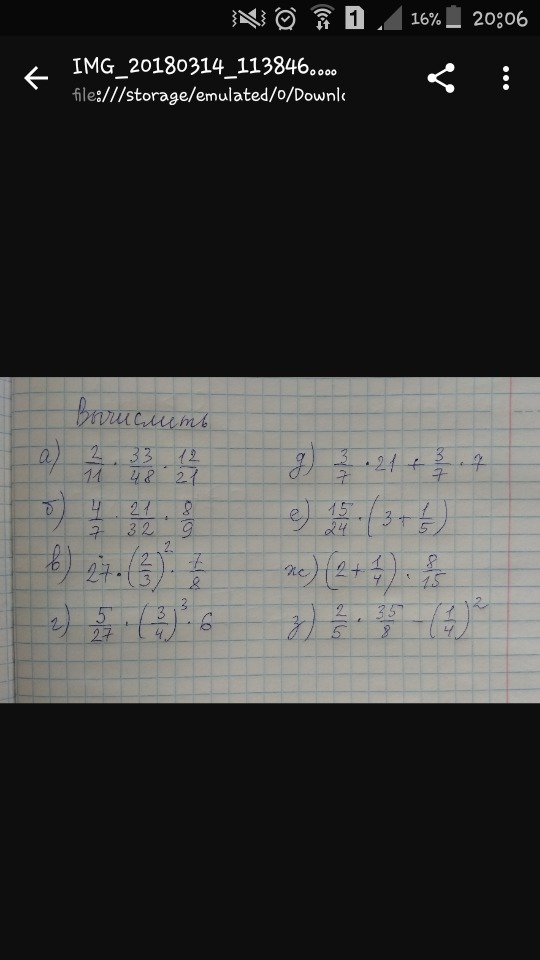 16% 20:06
IMG_20180314_113846....
file:///storage/emulated/0/Downlc
Вычислить
а) 2/11 · 33/48 · 12/21
б) 4/7 · 21/32 · 8/9
в) 27 · (2/3)² · 7/8
г) 5/27 · (3/4)³ · 6
д) 3/7 · 21 + 3/7 · 7
е) 15/24 · (3 + 1/5)
ж) (2 + 1/4) · 8/15
з) 2/5 · 35/8 - (1/4)²